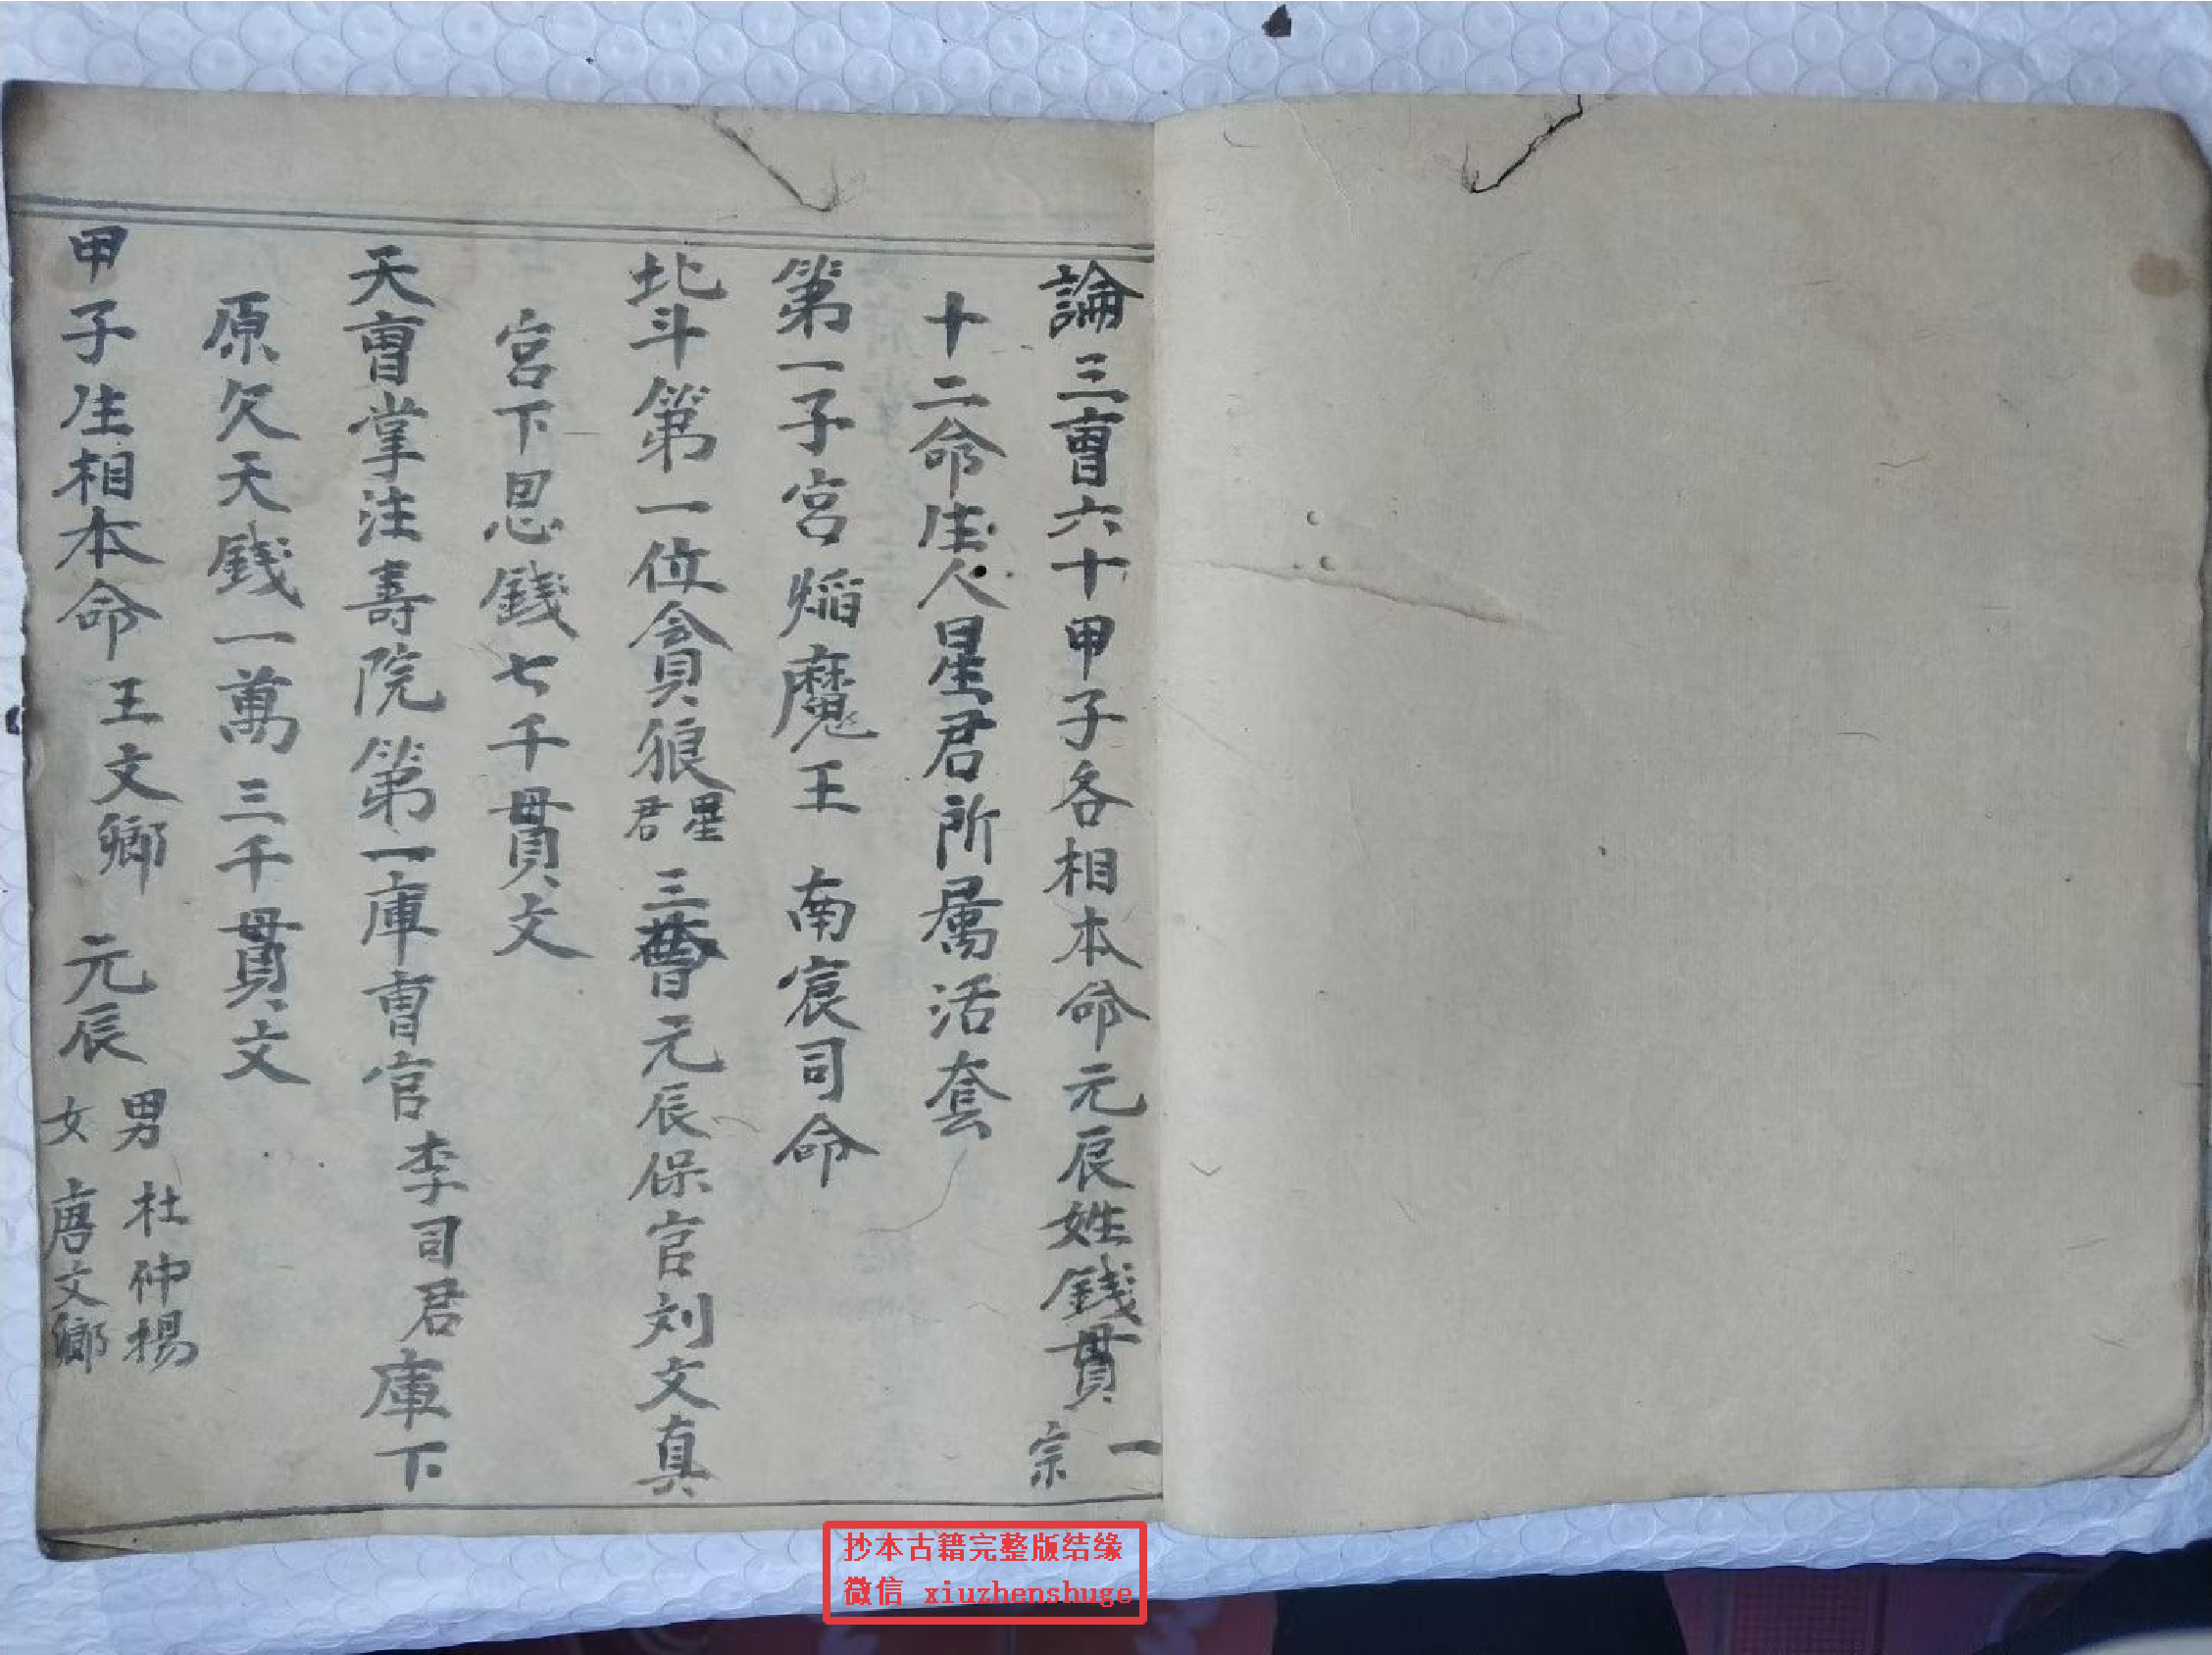 論三曹六十甲子各相本命元辰姓錢貫一宗
十二命生人星君所属活套
第一子宮焰魔王 南宸司命
北斗第一位貪狼星君三曹元辰保官刘文真
宮下恩錢七千貫文
天曹掌注壽院第一庫曹官李司君庫下
原欠天錢一萬三千貫文
甲子生相本命王文卿 元辰 男 杜仲楊
女 唐文卿
抄本古籍完整版结缘
微信 xiuzhenshuge